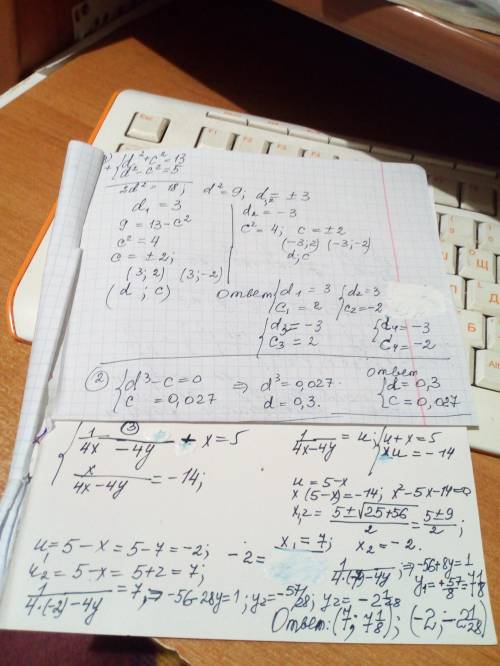 1) { d² + c² = 13
+ { d² - c² = 5
2d² = 18; d² = 9; d₁,₂ = ± 3
d₁ = 3
9 = 13 - c²
c² = 4
c = ± 2;
(3; 2) (3; -2)
(d ; c)
d₂ = -3
c² = 4; c = ±2
(-3; 2) (-3; -2)
d; c
Ответ { d₁ = 3 { d₂ = 3
c₁ = 2 c₂ = -2
{ d₃ = -3 { d₄ = -3
c₃ = 2 c₄ = -2
② { d³ - c = 0 ⇒ d³ = 0,027.
c = 0,027 d = 0,3.
ответ
{ d = 0,3
c = 0,027
③
{ 1/(4x - 4y) + x = 5
x/(4x - 4y) = -14;
1/(4x-4y) = u; { u + x = 5
xu = -14
u = 5 - x
x (5 - x) = -14; x² - 5x - 14 = 0
x₁,₂ = (5 ± √(25+56))/2 = (5 ± 9)/2;
x₁ = 7; x₂ = -2.
u₁ = 5 - x = 5 - 7 = -2; -2 = 1/(4·(7) - 4y); ⇒ -56 + 8y = 1
u₂ = 5 - x = 5 + 2 = 7; y₁ = +57/8 = 7 1/8
1/(4·(-2) - 4y) = 7; ⇒ -56 - 28y = 1; y₂ = -57/28; y₂ = -2 1/28
Ответ: (7; 7 1/8); (-2; -2 1/28)
Esc
F1
Alt